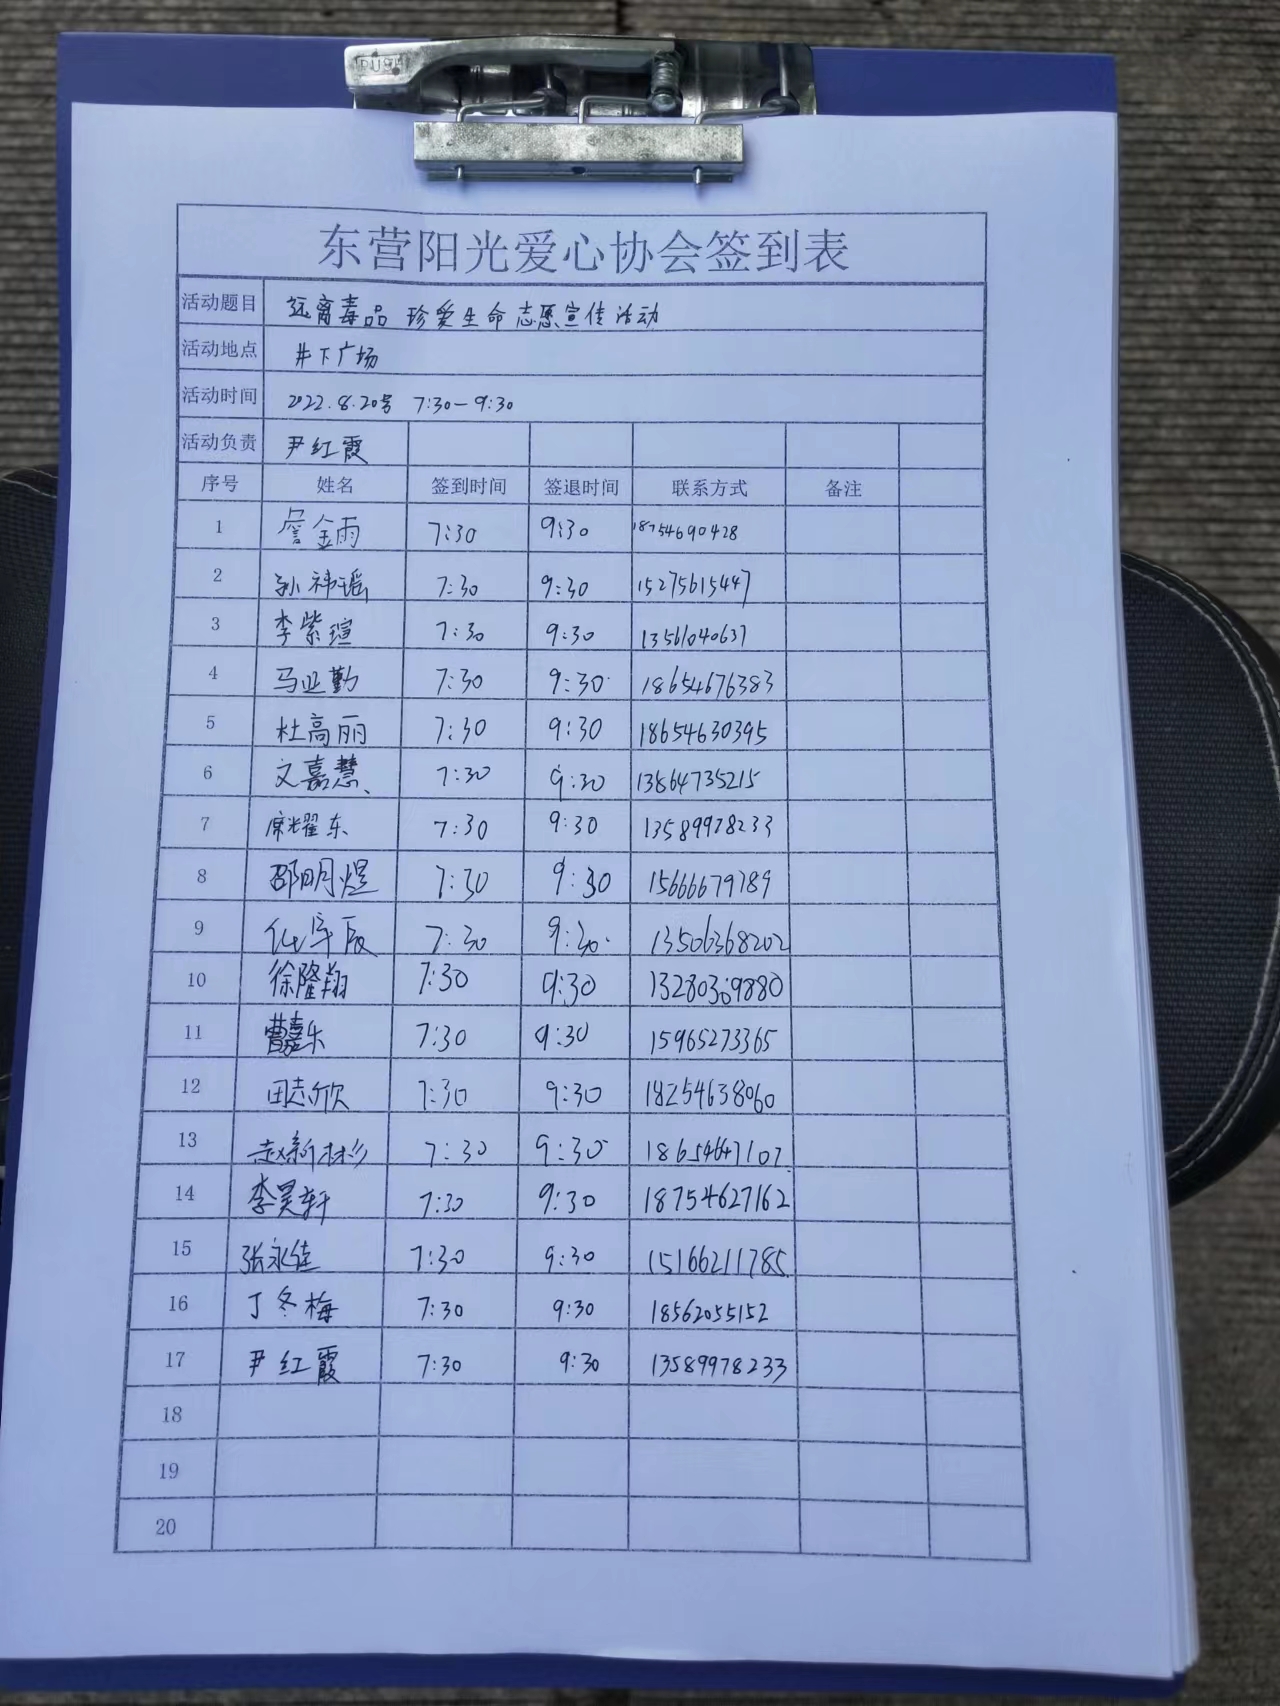 东营阳光爱心协会签到表
活动题目 远离毒品 珍爱生命志愿宣传活动
活动地点 井下广场
活动时间 2022.8.20号 7:30-9:30
活动负责 尹红霞
序号 姓名 签到时间 签退时间 联系方式 备注
1 詹金雨 7:30 9:30 18754690428
2 孙祎瑶 7:30 9:30 15275615447
3 李紫瑄 7:30 9:30 13561040637
4 马亚勤 7:30 9:30 18654676383
5 杜高丽 7:30 9:30 18654630395
6 文嘉慧 7:30 9:30 13864735215
7 席耀东 7:30 9:30 13589978233
8 邵明煜 7:30 9:30 15666679789
9 7:30 9:30 13506368202
10 徐隆翔 7:30 9:30 13280369880
11 曹嘉乐 7:30 9:30 15965273365
12 田志欣 7:30 9:30 18254638060
13 赵新彬 7:30 9:30 18654647107
14 李昊轩 7:30 9:30 18754627162
15 张永佳 7:30 9:30 15166211785
16 丁冬梅 7:30 9:30 18562055152
17 尹红霞 7:30 9:30 13589978233
18
19
20